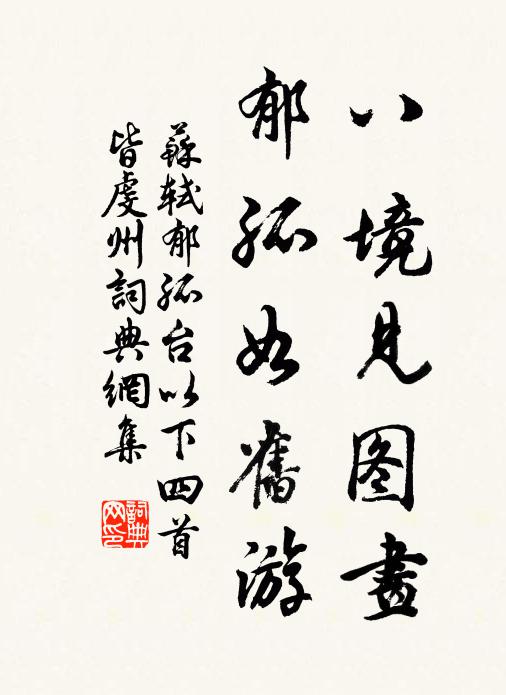 八境見图畫
郁孤如舊游
蘇轼郁孤台以下四首
皆虔州詞典網集
詞典
网印